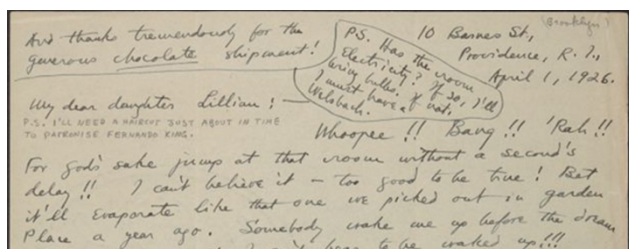 (Brooklyn)
And thanks tremendously for the
generous chocolate shipment!
P.S. Has the room
Electricity? If so, I'll
bring bulbs. If not,
I must have a
Welsbach.
10 Barnes St.,
Providence, R. I.,
April 1, 1926.
My dear daughter Lillian: —
P.S. I'LL NEED A HAIRCUT JUST ABOUT IN TIME
TO PATRONISE FERNANDO KING.
Whoopee!! Bang!! 'Rah!!
For god's sake jump at that room without a second's
delay!! I can't believe it — too good to be true! Bet
it'll evaporate like that one we picked out in garden
Place a year ago. Somebody wake me up before the dream
to be waked up!!!